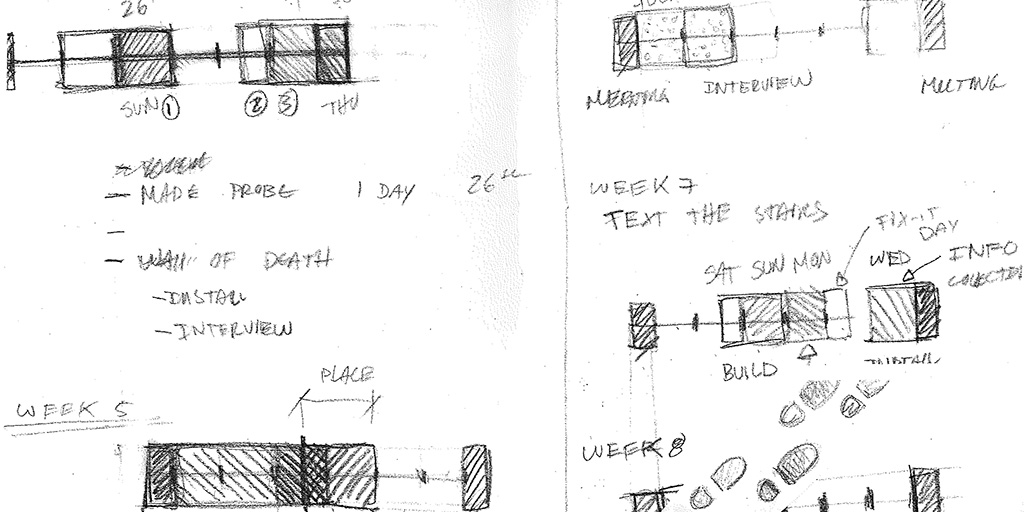 26
SUN ① ② ③ THU
— MADE PROBE 1 DAY 26
—
— WALL OF DEATH
— INSTALL
— INTERVIEW
PLACE
WEEK 5
MEETING INTERVIEW MEETING
WEEK 7
TEXT THE STAIRS
FIX-IT
DAY
SAT SUN MON WED INFO
BUILD INSTALL
WEEK 8